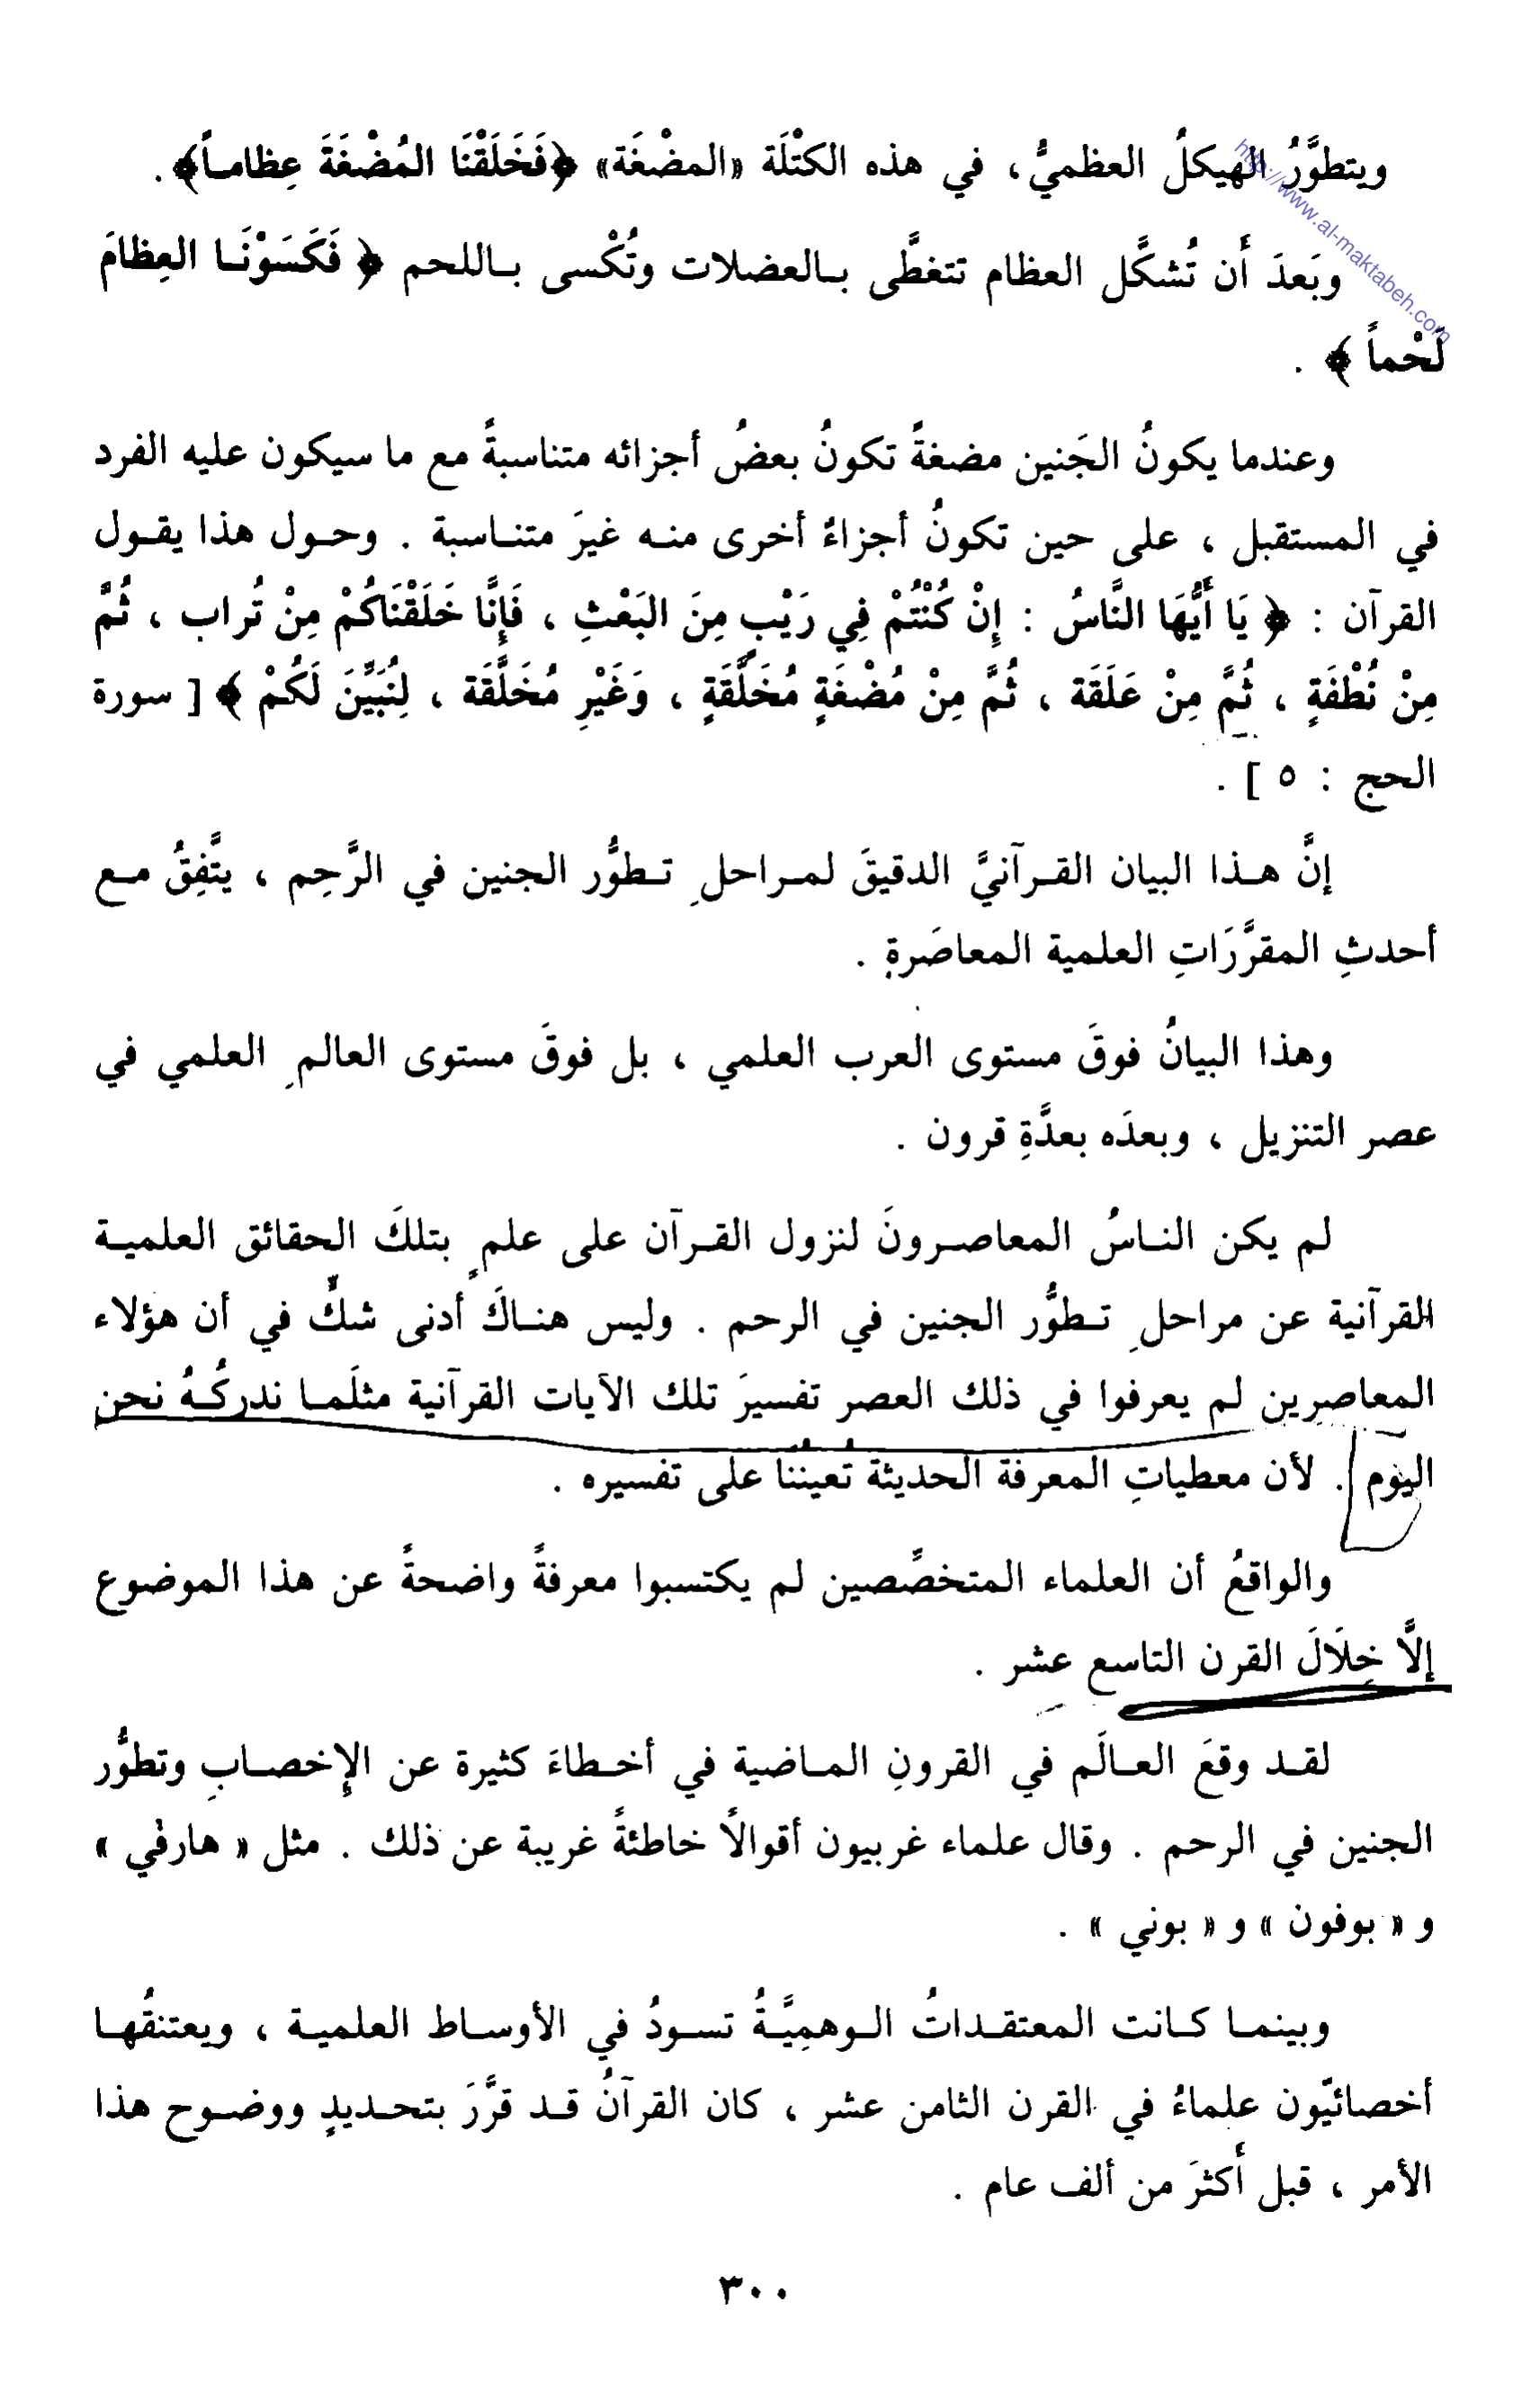 ويتطوَّرُ الهيكلُ العظميُّ، في هذه الكتْلَة «المضْغَة» ﴿فَخَلَقْنَا المُضْغَةَ عِظاماً﴾.
http://www.al-maktabeh.com
وبَعدَ أَن تُشكَّل العظام تتغطَّى بالعضلات وتُكْسى باللحم ﴿ فَكَسَوْنَا العِظامَ
لَحْماً ﴾ .
وعندما يكونُ الجَنين مضغةً تكونُ بعضُ أجزائه متناسبةً مع ما سيكون عليه الفرد
في المستقبل ، على حين تكونُ أجزاءٌ أخرى منه غيرَ متناسبة . وحول هذا يقول
القرآن : ﴿ يَا أَيُّهَا النَّاسُ : إِنْ كُنْتُمْ فِي رَيْبٍ مِنَ البَعْثِ ، فَإِنَّا خَلَقْنَاكُمْ مِنْ تُراب ، ثُمَّ
مِنْ نُطْفَةٍ ، ثُمَّ مِنْ عَلَقَة ، ثُمَّ مِنْ مُضْغَةٍ مُخَلَّقَةٍ ، وَغَيْرِ مُخَلَّقَة ، لِنُبَيِّنَ لَكُمْ ﴾ [ سورة
الحج : ٥ ] .
إنَّ هذا البيان القرآنيَّ الدقيقَ لمراحلِ تطوُّر الجنين في الرَّحِم ، يتَّفِقُ مع
أحدثِ المقرَّرَاتِ العلمية المعاصَرةِ .
وهذا البيانُ فوقَ مستوى العرب العلمي ، بل فوقَ مستوى العالمِ العلمي في
عصر التنزيل ، وبعدَه بعدَّةِ قرون .
لم يكن الناسُ المعاصرونَ لنزول القرآن على علمٍ بتلكَ الحقائق العلمية
القرآنية عن مراحلِ تطوُّر الجنين في الرحم . وليس هناكَ أدنى شكٍّ في أن هؤلاء
المعاصِرين لم يعرفوا في ذلك العصر تفسيرَ تلك الآيات القرآنية مثلَما ندركُهُ نحن
اليوم . لأن معطياتِ المعرفة الحديثة تُعينُنا على تفسيره .
والواقعُ أن العلماء المتخصِّصين لم يكتسبوا معرفةً واضحةً عن هذا الموضوع
إلَّا خِلَالَ القرن التاسع عشر .
لقد وقعَ العالَم في القرونِ الماضية في أخطاءَ كثيرة عن الإخصابِ وتطوُّر
الجنين في الرحم . وقال علماء غربيون أقوالاً خاطئةً غريبة عن ذلك . مثل « هارفي »
و « بوفون » و « بوني » .
وبينما كانت المعتقداتُ الوهمِيَّةُ تسودُ في الأوساط العلمية ، ويعتنقُها
أخصائيّون علماءُ في القرن الثامن عشر ، كان القرآنُ قد قرَّرَ بتحديدٍ ووضوح هذا
الأمر ، قبل أَكثرَ من ألف عام .
٣٠٠